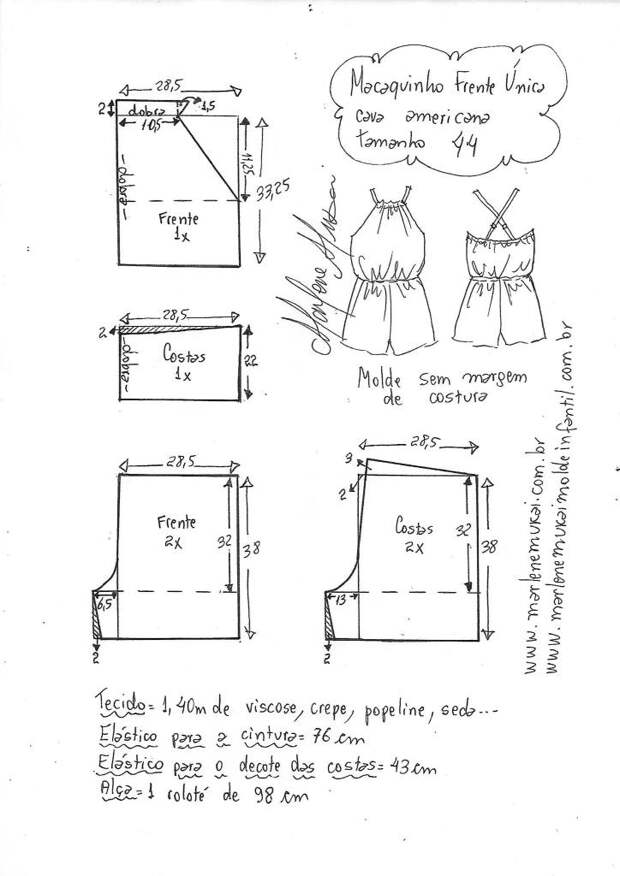 Macaquinho Frente Única
cava americana
tamanho 44
28,5
2
dobra
1,5
10,5
11,25
33,25
- dobra -
Frente
1x
28,5
2
- dobra -
Costas
1x
22
Molde sem margem
de costura
Marlene Mukai
www.marlenemukai.com.br
www.marlenemukaimoldeinfantil.com.br
28,5
Frente
2x
32
38
6,5
2
28,5
3
2
Costas
2x
32
38
13
2
Tecido = 1,40m de viscose, crepe, popeline, seda...
Elástico para a cintura = 76 cm
Elástico para o decote das costas = 43 cm
Alça = 1 roloté de 98 cm